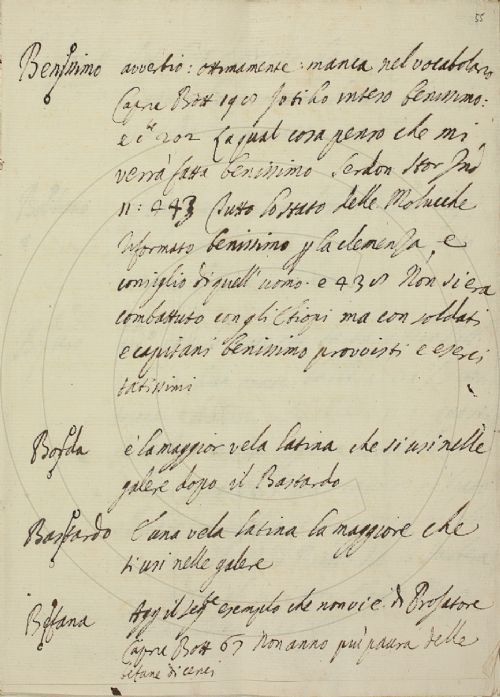 55
Benissimo avverbio: ottimamente: manca nel vocabolario
Capric Bott 198 Io ti ho inteso benissimo:
e c. 202 La qual cosa penso che mi
verrà fatta benissimo Serdon Stor Ind
11: 443 Tutto lo stato delle Molucche
riformato benissimo p la clemenza, e
consiglio di quell' uomo. e 438 Non si era
combattuto con gli Etiopi ma con soldati
e capitani benissimo provvisti e eserci
tatissimi
Borda è la maggior vela latina che si usi nelle
galere dopo il Bastardo
Bastardo È una vela latina la maggiore che
si usi nelle galere
Befana Agg il seg.te esempio che non vi è di Prosatore
Capric Bott 67 Non anno più paura delle
befane di cenci